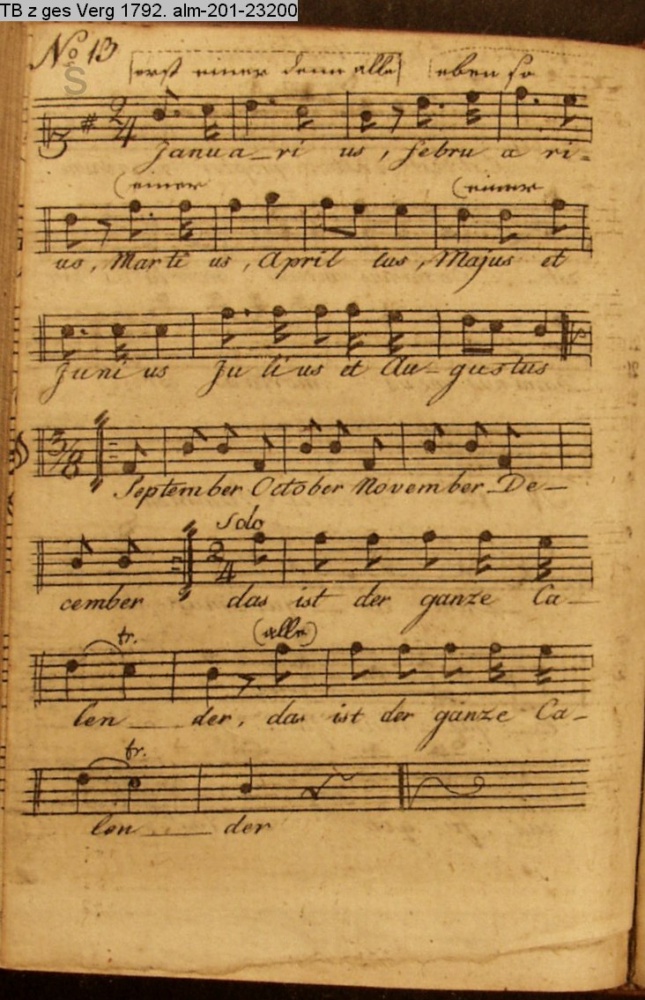 TB z ges Verg 1792. alm-201-23200
No 13
S
erst einer denn alle eben so
2/4
Janua_ri us, Febru a ri-
(einer (einer
us, Marti us, April lus, Majus et
Juni us Ju li us et Au-gustus
3/8
September October November De-
Solo
2/4
cember das ist der ganze Ca-
tr. (alle)
len___der, das ist der ganze Ca-
tr.
len___der